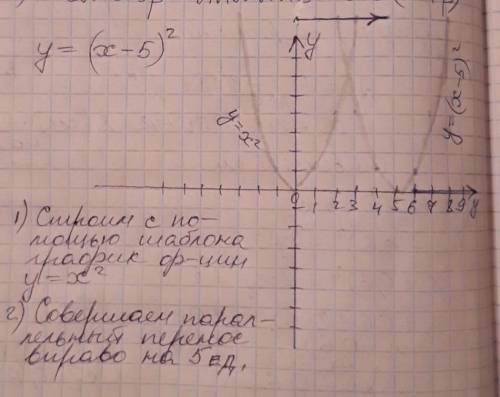 y = (x-5)²
y
y=x²
y=(x-5)²
0 1 2 3 4 5 6 7 8 9 y
1) Строим с по-
мощью шаблона
график ф-ции
y=x²
2) Совершаем парал-
лельный перенос
вправо на 5 ед.